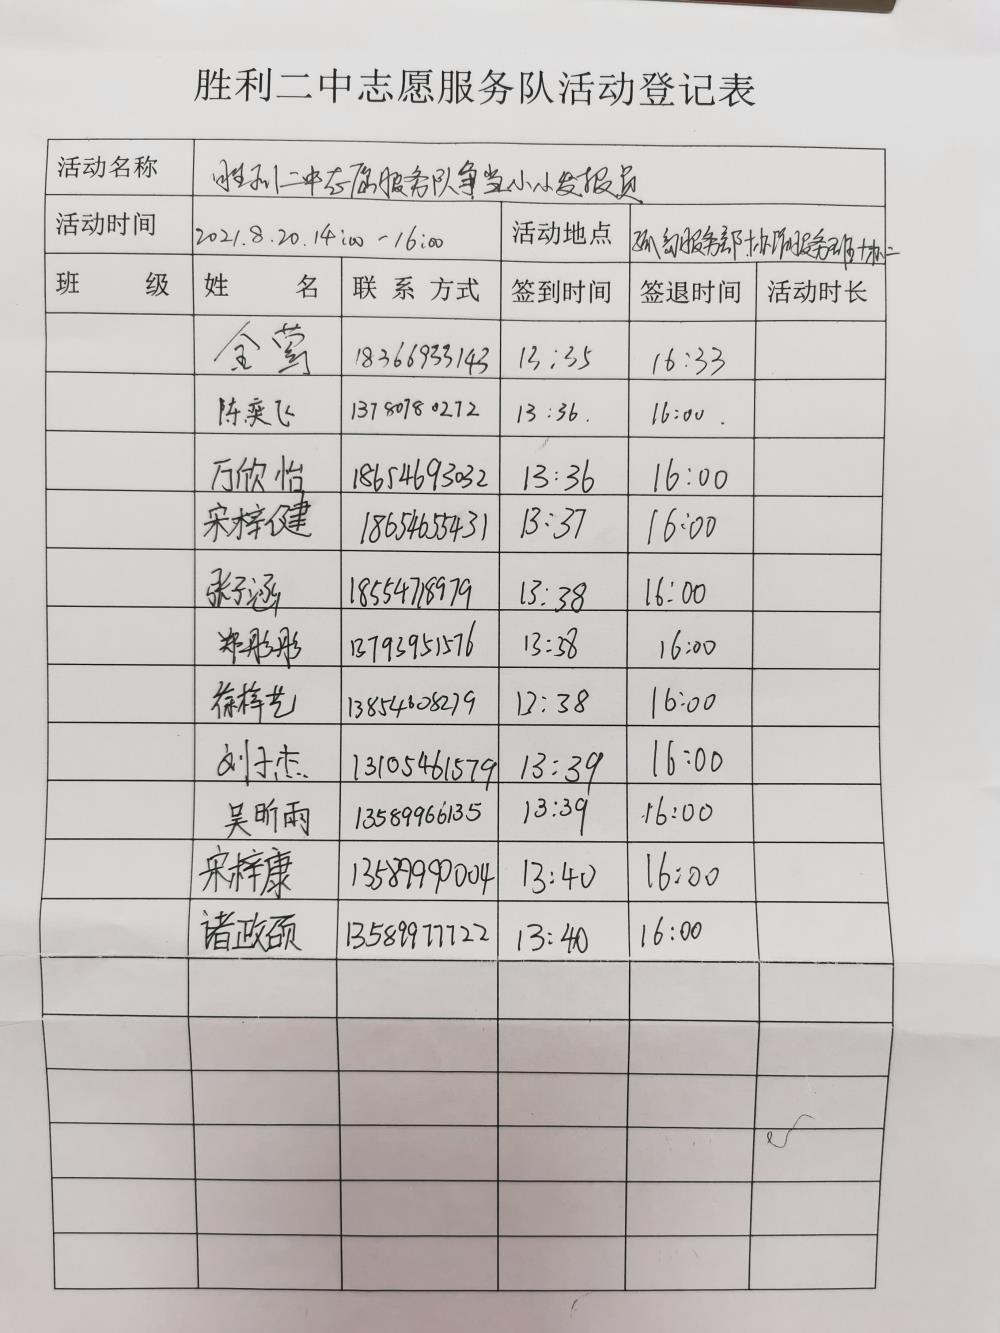 胜利二中志愿服务队活动登记表
活动名称 胜利二中志愿服务队争当小小发报员
活动时间 2021.8.20.14:00-16:00 活动地点 服务部 服务
班 级 姓 名 联 系 方式 签到时间 签退时间 活动时长
金莺 18366933143 13:35 16:33
陈奕飞 13780780272 13:36. 16:00.
万欣怡 18654693032 13:36 16:00
宋梓健 18654655431 13:37 16:00
张子涵 18554718979 13:38 16:00
郑彤彤 13793951576 13:38 16:00
徐梓艺 13854608279 13:38 16:00
刘子杰 13105461579 13:39 16:00
吴昕雨 13589966135 13:39 16:00
宋梓康 13589990004 13:40 16:00
诸政硕 13589977722 13:40 16:00